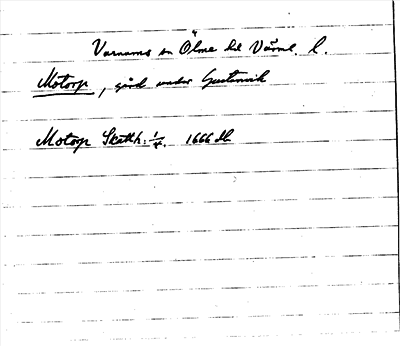 Varnums sn Ölme hd Värml. l.
Motorp, gård under Gustavsvik
Motorp Skatth: 1/4. 1666 Jb